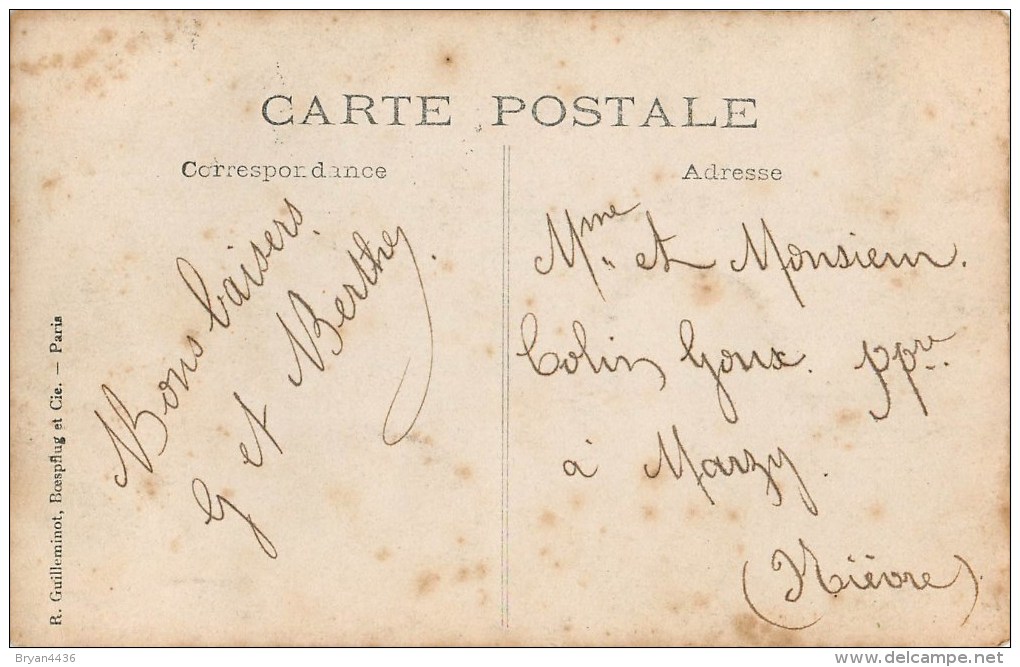 CARTE POSTALE
Correspondance
Adresse
Bons baisers.
G et Berthe.
Mme et Monsieur.
Colin Goux. ppre.
à Marzy.
(Nièvre)
R. Guilleminot, Bœspflug et Cie. — Paris
Bryan4436
delcampe.net